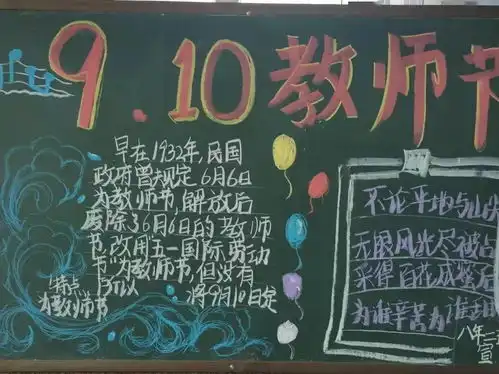 9.10教师节
早在1932年,民国
政府曾规定6月6日
为教师节,解放后
废除了6月6日的教师
节,改用五一国际劳动
节"为教师节,但没有
特点 所以 将9月10日定
为教师节
不论平地与山
无限风光尽被占
采得百花成蜜后
为谁辛苦为谁甜
八年二
宣